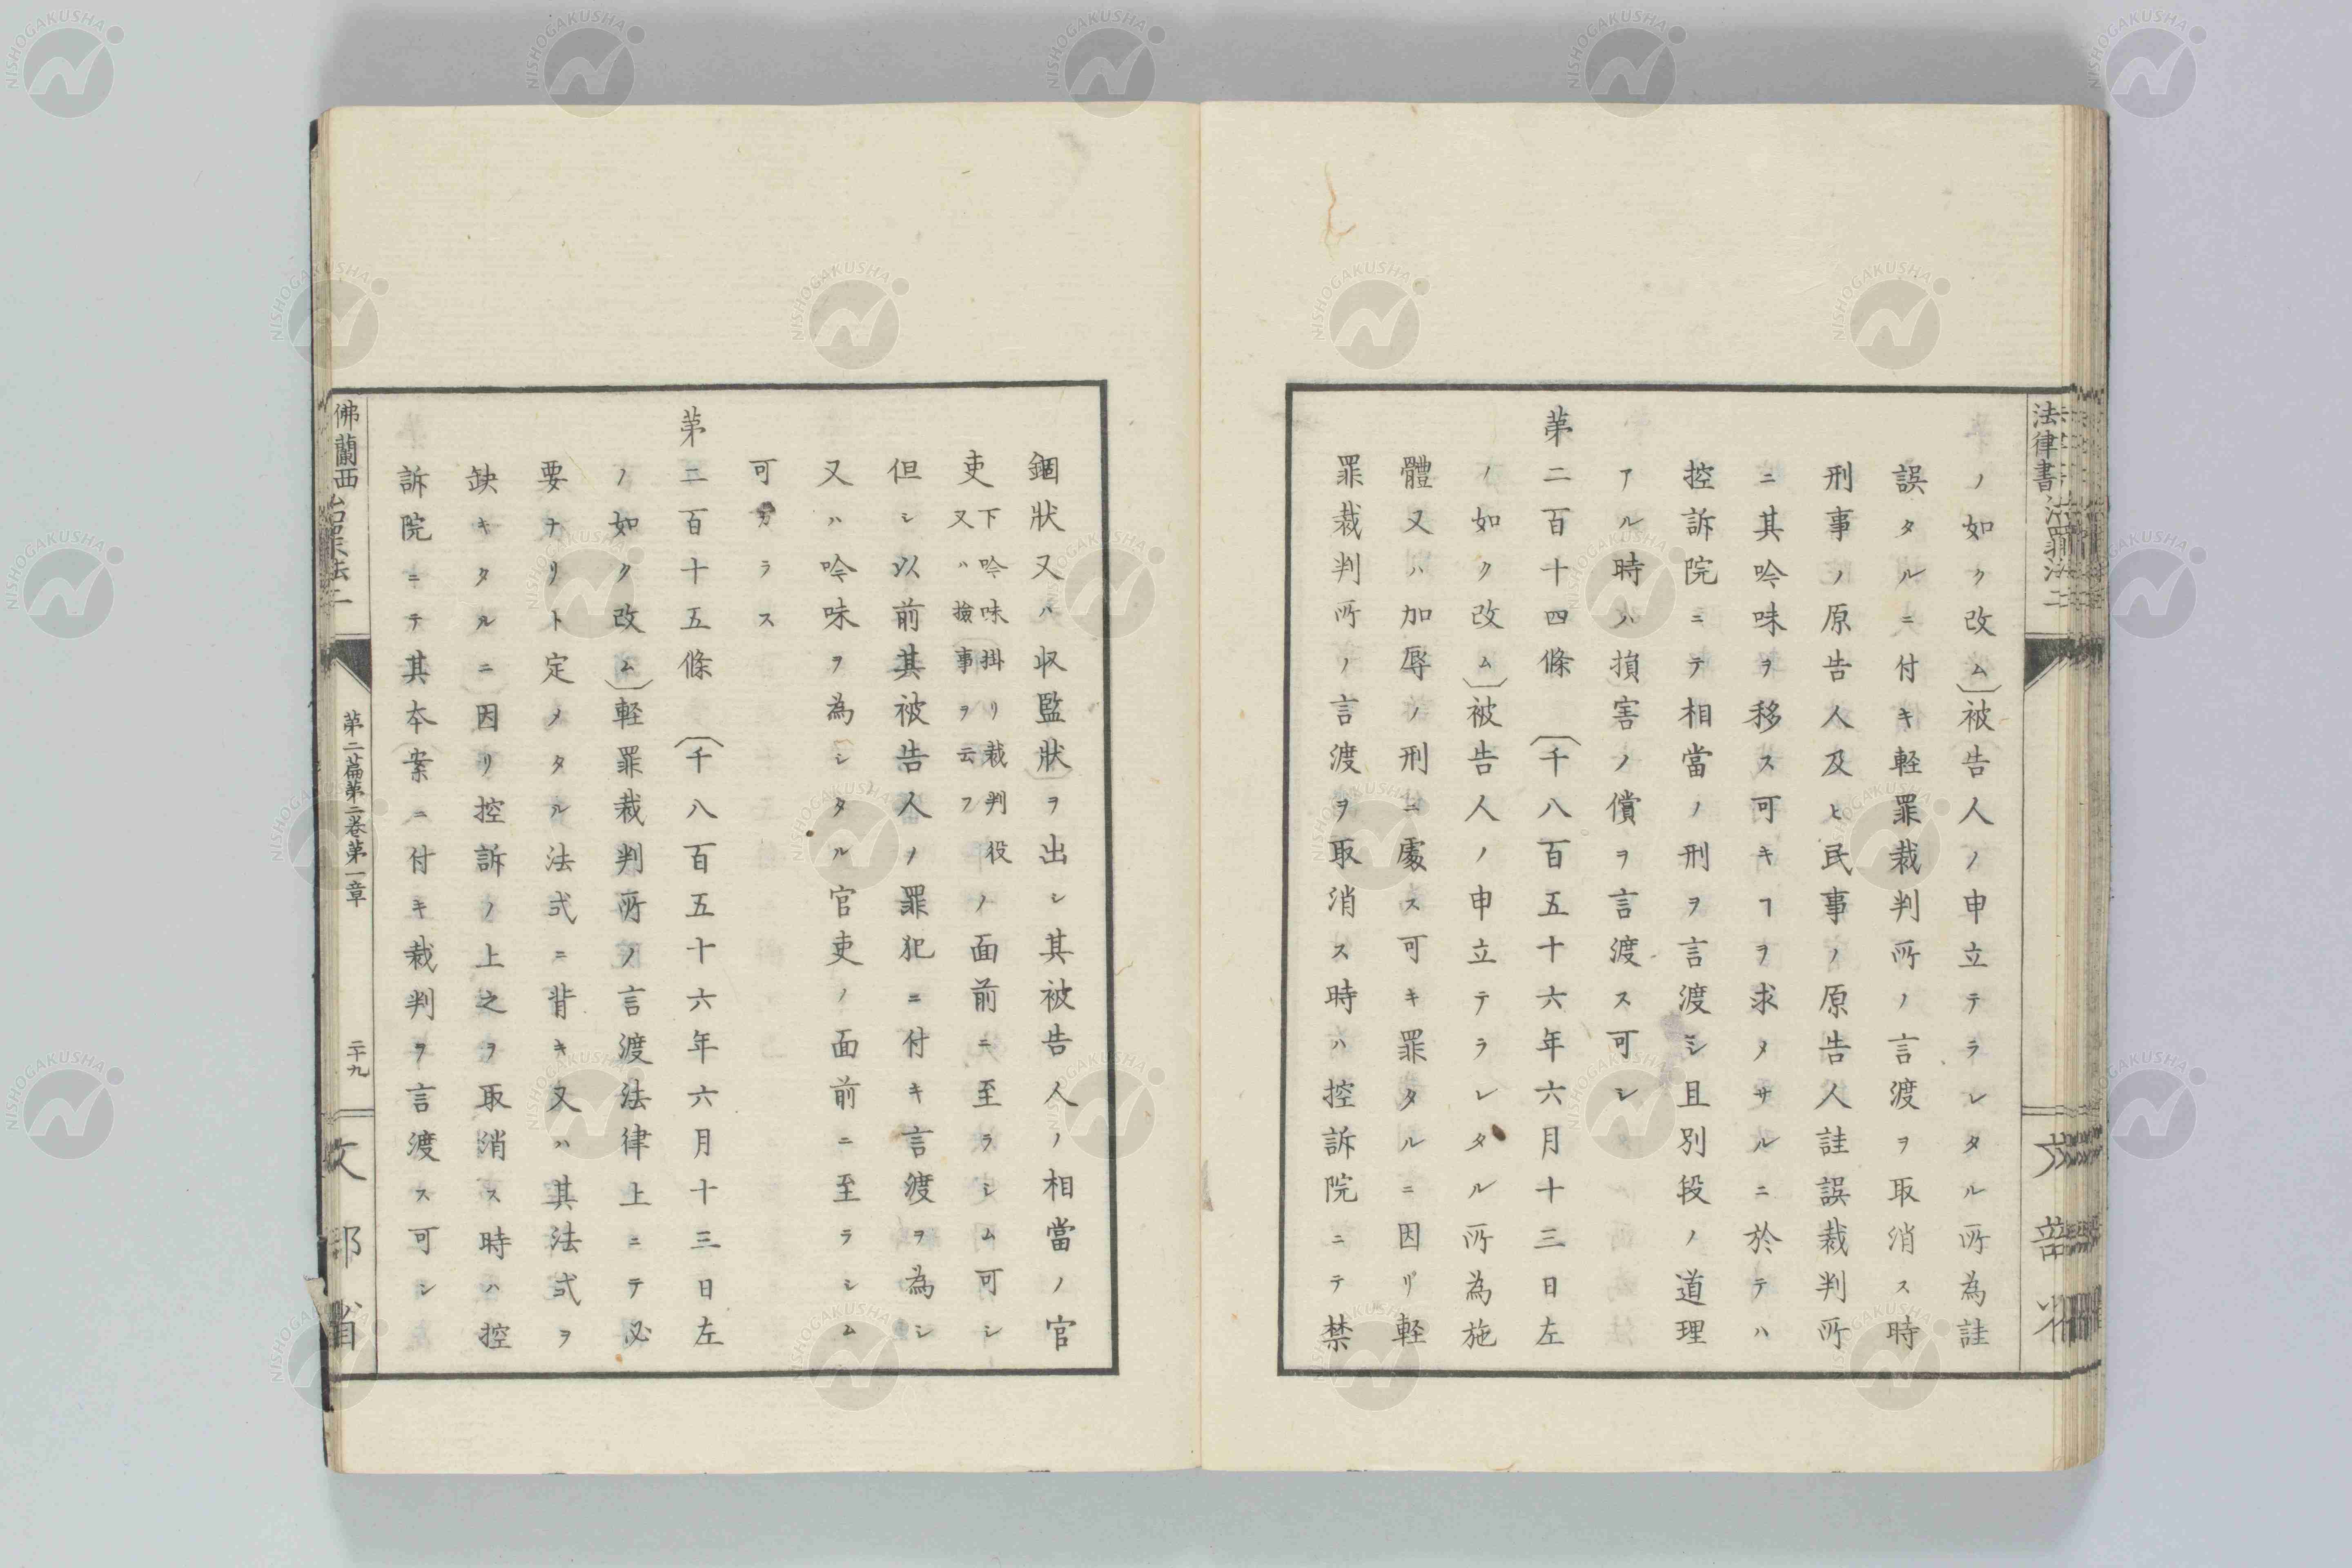 ノ如ク改ム〕被告人ノ申立テラレタル所為註
誤タルニ付キ軽罪裁判所ノ言渡ヲ取消ス時
刑事ノ原告人及ヒ民事ノ原告人註誤裁判所
ニ其吟味ヲ移ス可キヿヲ求メサルニ於テハ
控訴院ニテ相當ノ刑ヲ言渡シ且別段ノ道理
アル時ハ損害ノ償ヲ言渡ス可シ
第二百十四條〔千八百五十六年六月十三日左
ノ如ク改ム〕被告人ノ申立テラレタル所為施
體又ハ加辱ノ刑ニ處ス可キ罪タルニ因リ軽
罪裁判所ノ言渡ヲ取消ス時ハ控訴院ニテ禁
錮狀又ハ収監狀ヲ出シ其被告人ノ相當ノ官
吏下吟味掛リ裁判役又ハ撿事ヲ云フノ面前ニ至ラシム可シ
但シ以前其被告人ノ罪犯ニ付キ言渡ヲ為シ
又ハ吟味ヲ為シタル官吏ノ面前ニ至ラシム
可カラス
第二百十五條〔千八百五十六年六月十三日左
ノ如ク改ム〕軽罪裁判所ノ言渡法律上ニテ必
要ナリト定メタル法式ニ背キ又ハ其法式ヲ
缺キタルニ因リ控訴ノ上之ヲ取消ス時ハ控
訴院ニテ其本案ニ付キ裁判ヲ言渡ス可シ
法律書治罪法二
文部省
佛蘭西治罪法二
第二篇第二卷第一章
二十九
文部省
NISHOGAKUSHA